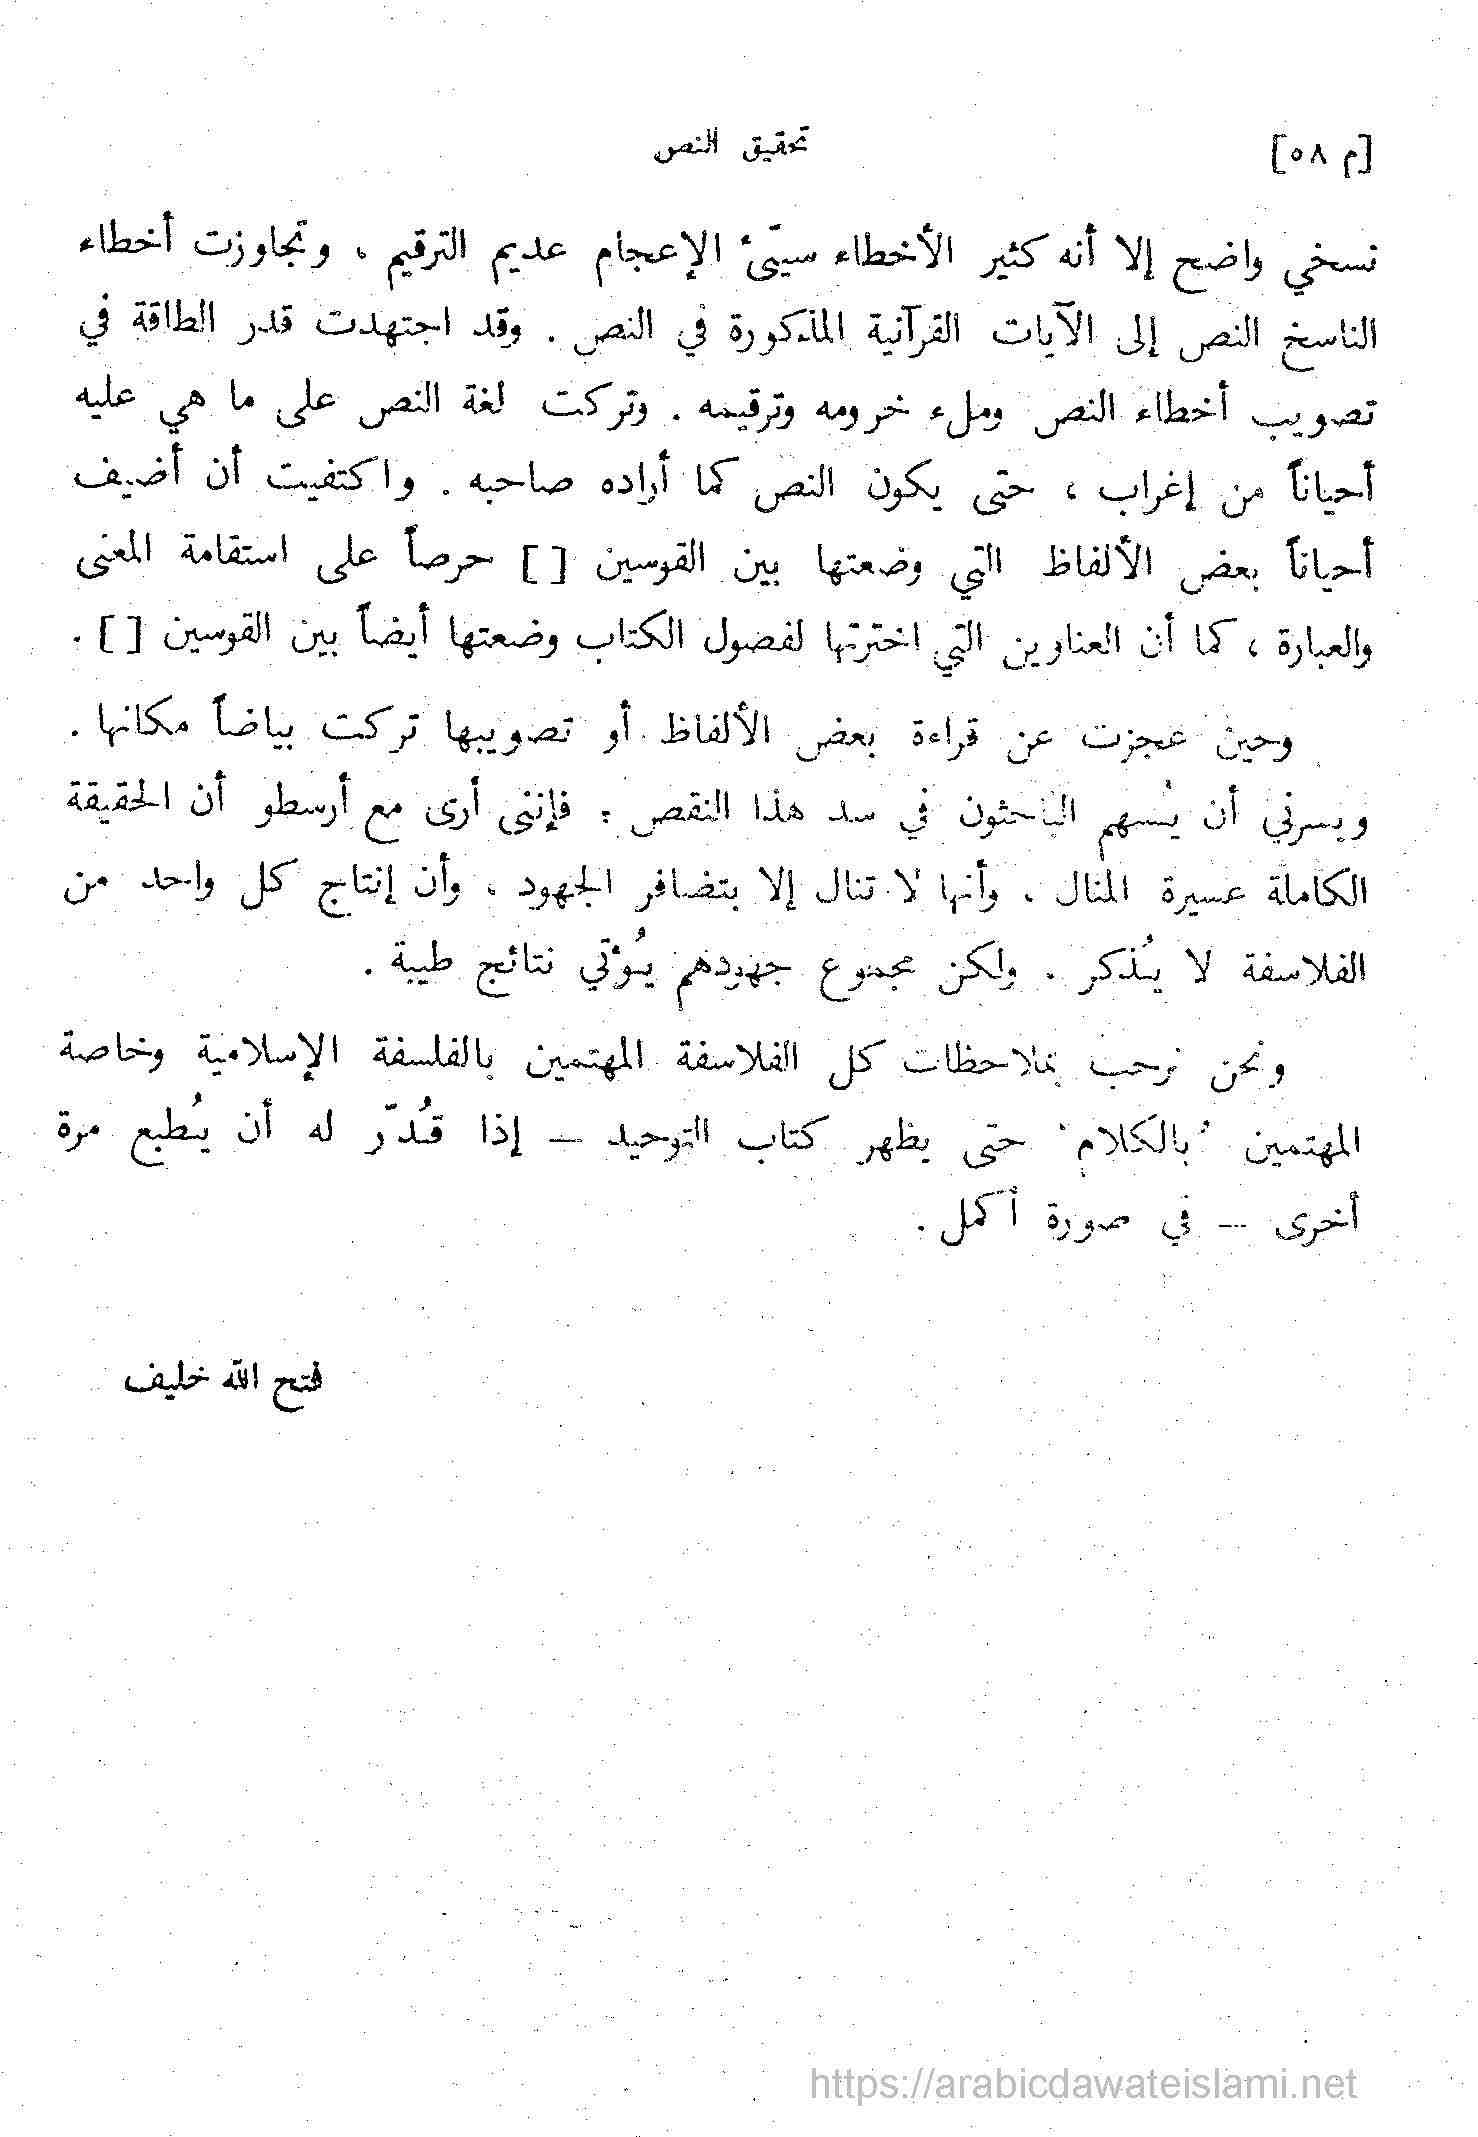 [م ٥٨]
تحقيق النص
نسخي واضح إلا أنه كثير الأخطاء سيّئ الإعجام عديم الترقيم ، وتجاوزت أخطاء
الناسخ النص إلى الآيات القرآنية المذكورة في النص . وقد اجتهدت قدر الطاقة في
تصويب أخطاء النص وملء خرومه وترقيمه . وتركت لغة النص على ما هي عليه
أحياناً من إغراب ، حتى يكون النص كما أراده صاحبه . واكتفيت أن أضيف
أحياناً بعض الألفاظ التي وضعتها بين القوسين [ ] حرصاً على استقامة المعنى
والعبارة ، كما أن العناوين التي اخترتها لفصول الكتاب وضعتها أيضاً بين القوسين [ ] .
وحين عجزت عن قراءة بعض الألفاظ أو تصويبها تركت بياضاً مكانها .
ويسرني أن يُسهم الباحثون في سد هذا النقص ؛ فإنني أرى مع أرسطو أن الحقيقة
الكاملة عسيرة المنال ، وأنها لا تنال إلا بتضافر الجهود ، وأن إنتاج كل واحد من
الفلاسفة لا يُذكر ، ولكن مجموع جهودهم يُؤتي نتائج طيبة .
ونحن نرحب بملاحظات كل الفلاسفة المهتمين بالفلسفة الإسلامية وخاصة
المهتمين ' بالكلام ' حتى يظهر كتاب التوحيد – إذا قُدّر له أن يُطبع مرة
أخرى – في صورة أكمل .
فتح الله خليف
https://arabicdawateislami.net